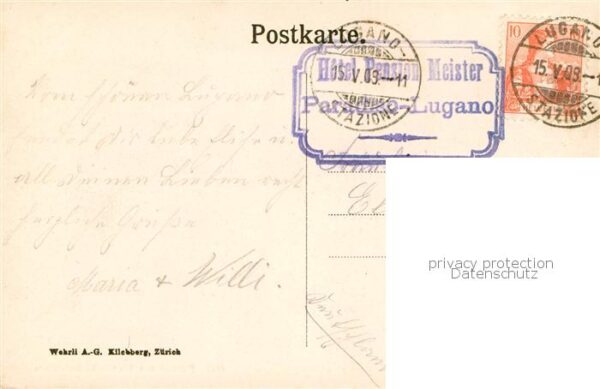 Postkarte.
LUGANO
15.V.09.–11
STAZIONE
Hôtel Pension Meister
Paradiso-Lugano
10
LUGANO
15.V.09.–1
STAZIONE
Vom schönen Lugano
sendet Dir liebe
all Deinen Lieben recht
herzliche Grüße
Maria & Willi.
privacy protection
Datenschutz
Wehrli A.-G. Kilchberg, Zürich